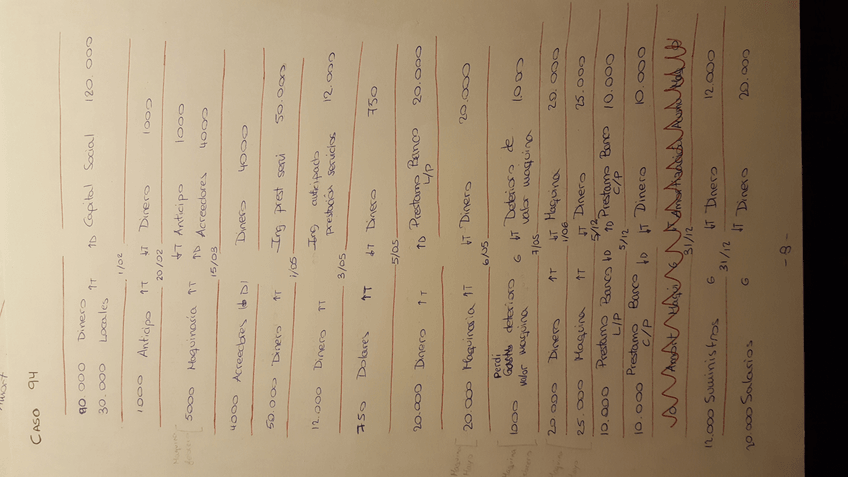 CASO 94
90.000 Dinero ↑T ↑D Capital Social 120.000
30.000 Locales
1/02
1000 Anticipo ↑T ↓T Dinero 1000
20/02
5000 Maquinaria ↑T ↓T Anticipo 1000
↑D Acreedores 4000
15/03
4000 Acreedores ↓D Dinero 4000
50.000 Dinero ↑T Ing prest servi 50.000
1/05
12.000 Dinero ↑T Ing anticipado 12.000
prestación servicios
3/05
750 Dolares ↑T ↓T Dinero 750
5/05
20.000 Dinero ↑T ↑D Prestamo Banco 20.000
L/P
20.000 Maquinaria ↑T ↓T Dinero 20.000
6/05
Perdi
1000 deterioro G ↓T Deterioro de 1.000
valor maquina valor maquina
7/05
20.000 Dinero ↑T ↓T Maquina 20.000
1/06
25.000 Maquina ↑T ↓T Dinero 25.000
5/12
10.000 Prestamo Banco ↓D ↑D Prestamo Banco 10.000
L/P C/P
5/12
10.000 Prestamo Banco ↓D ↓T Dinero 10.000
C/P
31/12
12.000 Suministros G ↓T Dinero 12.000
31/12
20.000 Salarios G ↓T Dinero 20.000
-8-